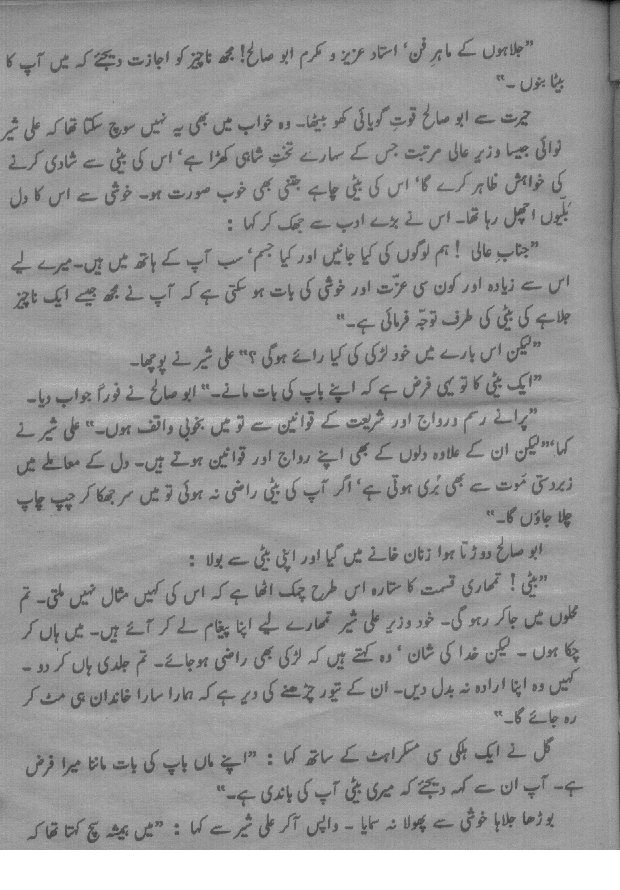 ”جلاہوں کے ماہرِ فن‘ استاد عزیز و مکرم ابو صالح! مجھ ناچیز کو اجازت دیجئے کہ میں آپ کا
بیٹا بنوں ۔“
حیرت سے ابو صالح قوتِ گویائی کھو بیٹھا۔ وہ خواب میں بھی یہ نہیں سوچ سکتا تھا کہ علی شیر
نوائی جیسا وزیرِ عالی مرتبت جس کے سہارے تختِ شاہی کھڑا ہے‘ اس کی بیٹی سے شادی کرنے
کی خواہش ظاہر کرے گا‘ اس کی بیٹی چاہے جتنی بھی خوب صورت ہو۔ خوشی سے اس کا دل
بلّیوں اچھل رہا تھا۔ اس نے بڑے ادب سے جھک کر کہا :
”جنابِ عالی ! ہم لوگوں کی کیا جانیں اور کیا جسم‘ سب آپ کے ہاتھ میں ہیں۔میرے لیے
اس سے زیادہ اور کون سی عزّت اور خوشی کی بات ہو سکتی ہے کہ آپ نے مجھ جیسے ایک ناچیز
جلاہے کی بیٹی کی طرف توجّہ فرمائی ہے۔“
”لیکن اس بارے میں خود لڑکی کی کیا رائے ہوگی ؟“ علی شیر نے پوچھا۔
”ایک بیٹی کا تو یہی فرض ہے کہ اپنے باپ کی بات مانے۔“ ابو صالح نے فوراً جواب دیا۔
”پرانے رسم و رواج اور شریعت کے قوانین سے تو میں بخوبی واقف ہوں۔“ علی شیر نے
کہا‘ ”لیکن ان کے علاوہ دلوں کے بھی اپنے رواج اور قوانین ہوتے ہیں۔ دل کے معاملے میں
زبردستی موت سے بھی بُری ہوتی ہے‘ اگر آپ کی بیٹی راضی نہ ہوئی تو میں سر جھکا کر چپ چاپ
چلا جاؤں گا۔“
ابو صالح دوڑتا ہوا زنان خانے میں گیا اور اپنی بیٹی سے بولا :
”بیٹی ! تمہاری قسمت کا ستارہ اس طرح چمک اٹھا ہے کہ اس کی کہیں مثال نہیں ملتی۔ تم
محلوں میں جاکر رہو گی۔ خود وزیر علی شیر تمہارے لیے اپنا پیغام لے کر آئے ہیں۔ میں ہاں کر
چکا ہوں ۔ لیکن خدا کی شان ‘ وہ کہتے ہیں کہ لڑکی بھی راضی ہوجائے۔ تم جلدی ہاں کر دو ۔
کہیں وہ اپنا ارادہ نہ بدل دیں۔ ان کے تیور چڑھنے کی دیر ہے کہ ہمارا سارا خاندان ہی مٹ کر
رہ جائے گا۔“
گل نے ایک ہلکی سی مسکراہٹ کے ساتھ کہا : ”اپنے ماں باپ کی بات ماننا میرا فرض
ہے۔ آپ ان سے کہہ دیجئے کہ میری بیٹی آپ کی باندی ہے۔“
بوڑھا جلاہا خوشی سے پھولا نہ سمایا ۔ واپس آکر علی شیر سے کہا : ”میں ہمیشہ سچ کہتا تھا کہ